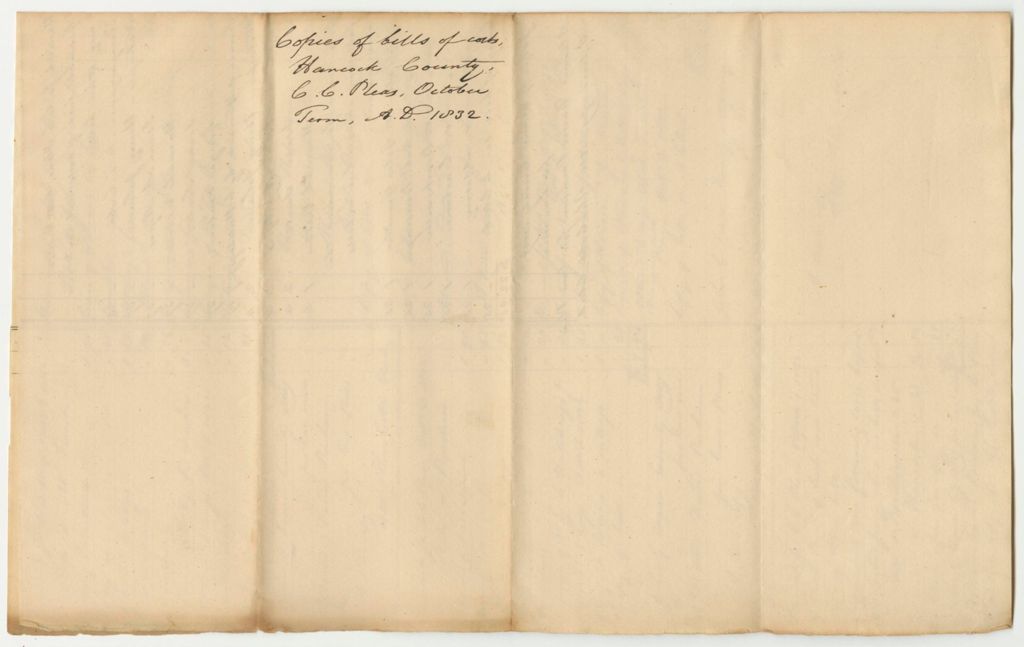 Copies of bills of costs,
Hancock County,
C. C. Pleas, October
Term, A.D. 1832.